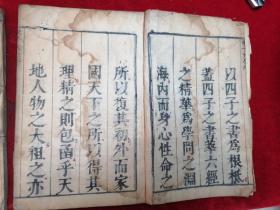 以四子之書為根柢
蓋四子之書萃六經
之精華為學問之淵
海內而身心性命之
所以復其初外而家
國天下之所以得其
理精之則包函乎天
地人物之大粗之亦